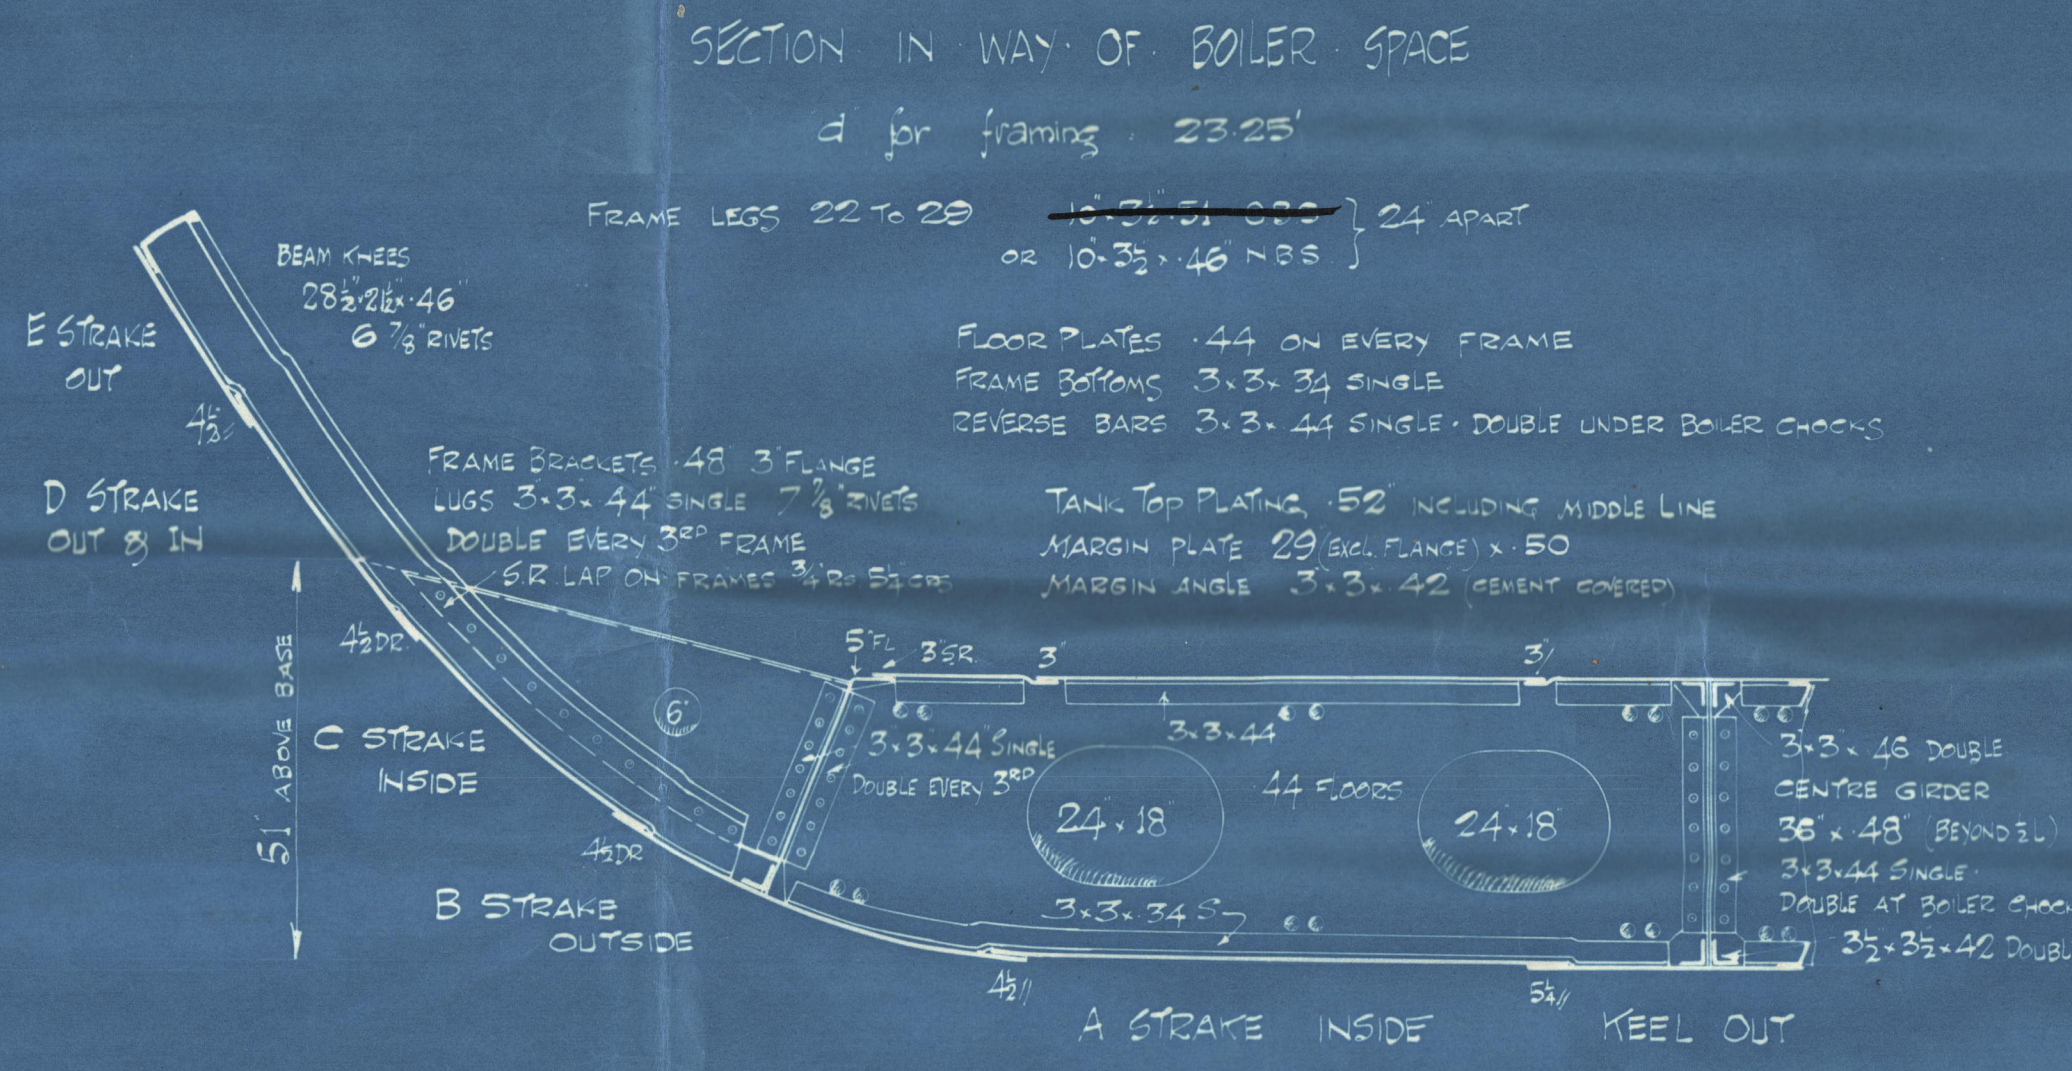 SECTION · IN · WAY · OF · BOILER · SPACE
d for framing · 23·25'
FRAME LEGS 22 TO 29
10"·3½·51 OBS
OR 10"·3½ × ·46" NBS
24" APART
BEAM KNEES
28½"×21½"×·46"
6 7/8" RIVETS
E STRAKE
OUT
4½"
FLOOR PLATES ·44 ON EVERY FRAME
FRAME BOTTOMS 3×3×34 SINGLE
REVERSE BARS 3×3×·44 SINGLE · DOUBLE UNDER BOILER CHOCKS
FRAME BRACKETS ·48" 3" FLANGE
LUGS 3"×3"×·44" SINGLE 7 7/8" RIVETS
DOUBLE EVERY 3RD FRAME
S.R. LAP ON FRAMES 3/4" RS 5¼" CRS
D STRAKE
OUT & IN
TANK TOP PLATING ·52" INCLUDING MIDDLE LINE
MARGIN PLATE 29" (EXCL. FLANGE) × ·50
MARGIN ANGLE 3"×3"×·42 (CEMENT COVERED)
4½ DR.
51" ABOVE BASE
5" FL
3" S.R.
3"
3"
6"
C STRAKE
INSIDE
3×3×44" SINGLE
DOUBLE EVERY 3RD
3×3×44"
44 FLOORS
24"×18"
24"×18"
3"×3"×·46 DOUBLE
CENTRE GIRDER
36"×·48" (BEYOND ½L)
3×3×44 SINGLE ·
DOUBLE AT BOILER CHOCK
3½×3½×42 DOUBL
4½ DR
B STRAKE
OUTSIDE
3×3×·34 S
4½"
5¼"
A STRAKE INSIDE
KEEL OUT